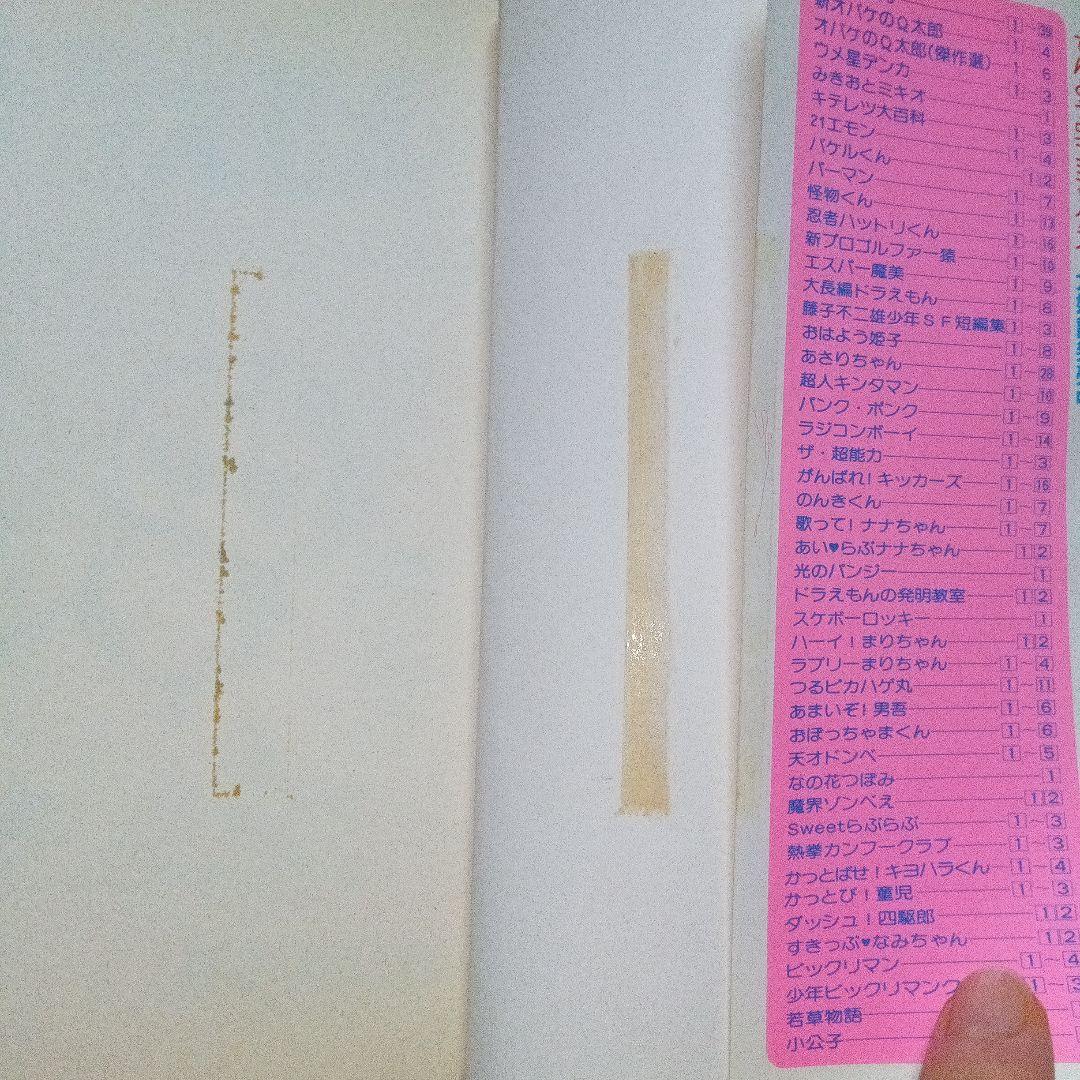 新オバケのQ太郎 1～4
オバケのQ太郎(傑作選) 1～6
ウメ星デンカ 1～3
みきおとミキオ 1
キテレツ大百科 1～3
21エモン 1～4
バケルくん 1 2
パーマン 1～7
怪物くん 1～13
忍者ハットリくん 1～16
新プロゴルファー猿 1～10
エスパー魔美 1～9
大長編ドラえもん 1～8
藤子不二雄少年SF短編集 1～3
おはよう姫子 1～8
あさりちゃん 1～28
超人キンタマン 1～10
パンク・ポンク 1～9
ラジコンボーイ 1～14
ザ・超能力 1～3
がんばれ!キッカーズ 1～16
のんきくん 1～7
歌って!ナナちゃん 1～7
あい♥らぶナナちゃん 1 2
光のパンジー 1
ドラえもんの発明教室 1 2
スケボーロッキー 1
ハーイ!まりちゃん 1 2
ラブリーまりちゃん 1～4
つるピカハゲ丸 1～11
あまいぞ!男吾 1～6
おぼっちゃまくん 1～6
天オドンベ 1～5
なの花つぼみ 1
魔界ゾンべえ 1 2
Sweetらぶらぶ 1～3
熱拳カンフークラブ 1～3
かっとばせ!キヨハラくん 1～4
かっとび!童児 1～3
ダッシュ!四駆郎 1 2
すきっぷ♥なみちゃん 1 2
ビックリマン 1～4
少年ビックリマンク 1～3
若草物語
小公子